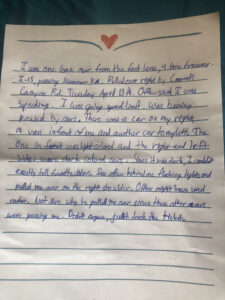 I was one lane over from the fast lane, 4 lane freeway.
I-15, passing Mountain Rd. Pulled over right by Carroll
Canyon Rd, Tuesday April 13th. Officer said I was
speeding. I was going speed limit. Was being
passed by cars. There was a car on my right,
a van infront of me and another car to my left. The
one in front was light colored and the right and left
sides were dark colored cars. Since it was dark, I couldn't
exactly tell from the colors. Saw officer behind me flashing lights and
pulled me over on the right shoulder. Officer might have used
radar. Not sure why he pulled me over since these other cars
were passing me. Didn't argue, just took the ticket.